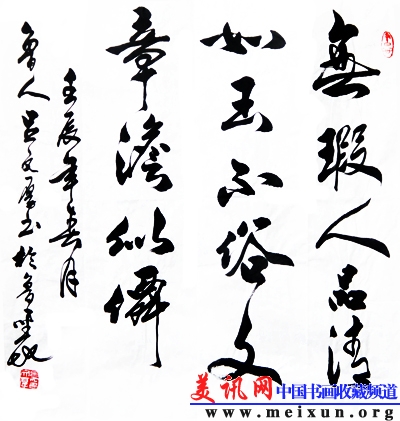 無瑕人品清
如玉不俗文
章澹似僊
壬辰年春月
魯人呂文書於魯
美讯网 中国书画收藏频道
www.meixun.org